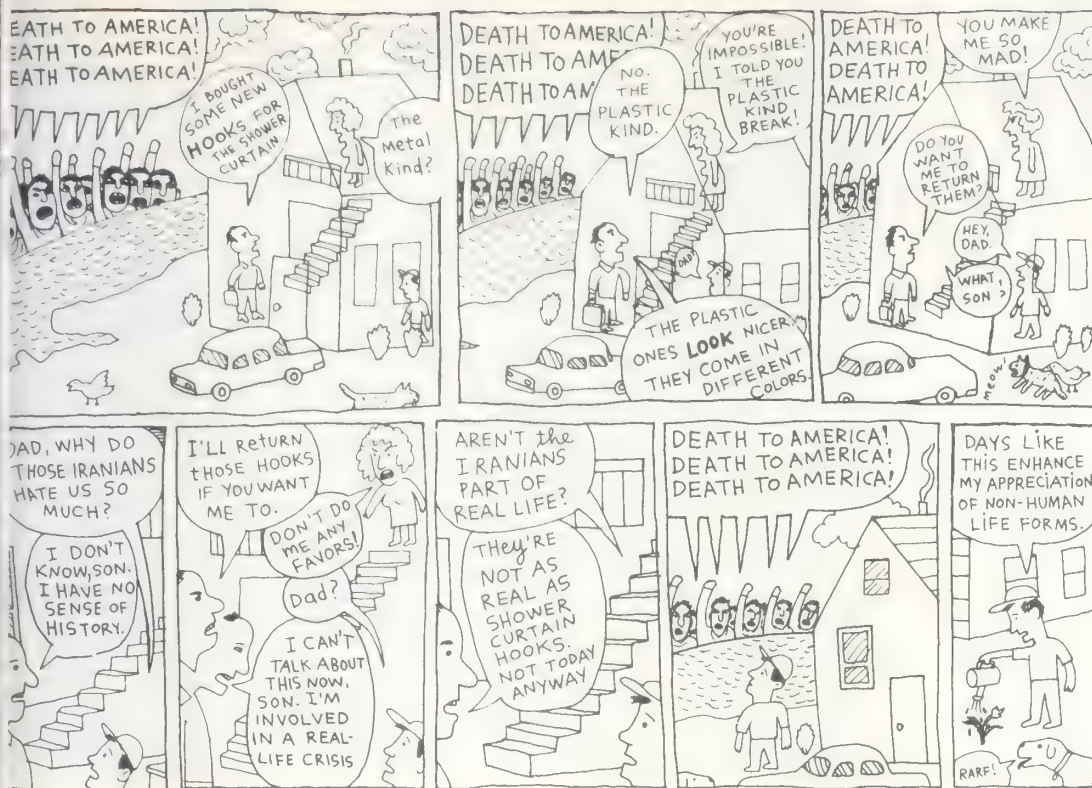 EATH TO AMERICA!
EATH TO AMERICA!
EATH TO AMERICA!
I BOUGHT
SOME NEW
HOOKS FOR
THE SHOWER
CURTAIN
The
Metal
Kind?
DEATH TO AMERICA!
DEATH TO AME
DEATH TO AM
NO.
THE
PLASTIC
KIND.
YOU'RE
IMPOSSIBLE!
I TOLD YOU
THE
PLASTIC
KIND
BREAK!
DAD?
THE PLASTIC
ONES LOOK NICER.
THEY COME IN
DIFFERENT
COLORS.
DEATH TO
AMERICA!
DEATH TO
AMERICA!
YOU MAKE
ME SO
MAD!
DO YOU
WANT
ME TO
RETURN
THEM?
HEY,
DAD.
WHAT,
SON?
meow!
DAD, WHY DO
THOSE IRANIANS
HATE US SO
MUCH?
I DON'T
KNOW, SON.
I HAVE NO
SENSE OF
HISTORY.
I'LL RETURN
those HOOKS
IF YOU WANT
ME TO.
DON'T DO
ME ANY
FAVORS!
Dad?
I CAN'T
TALK ABOUT
THIS NOW,
SON. I'M
INVOLVED
IN A REAL-
LIFE CRISIS
AREN'T the
IRANIANS
PART OF
REAL LIFE?
THEY'RE
NOT AS
REAL AS
SHOWER
CURTAIN
HOOKS.
NOT TODAY
ANYWAY
DEATH TO AMERICA!
DEATH TO AMERICA!
DEATH TO AMERICA!
DAYS LIKE
THIS ENHANCE
MY APPRECIATION
OF NON-HUMAN
LIFE FORMS.
RARF!